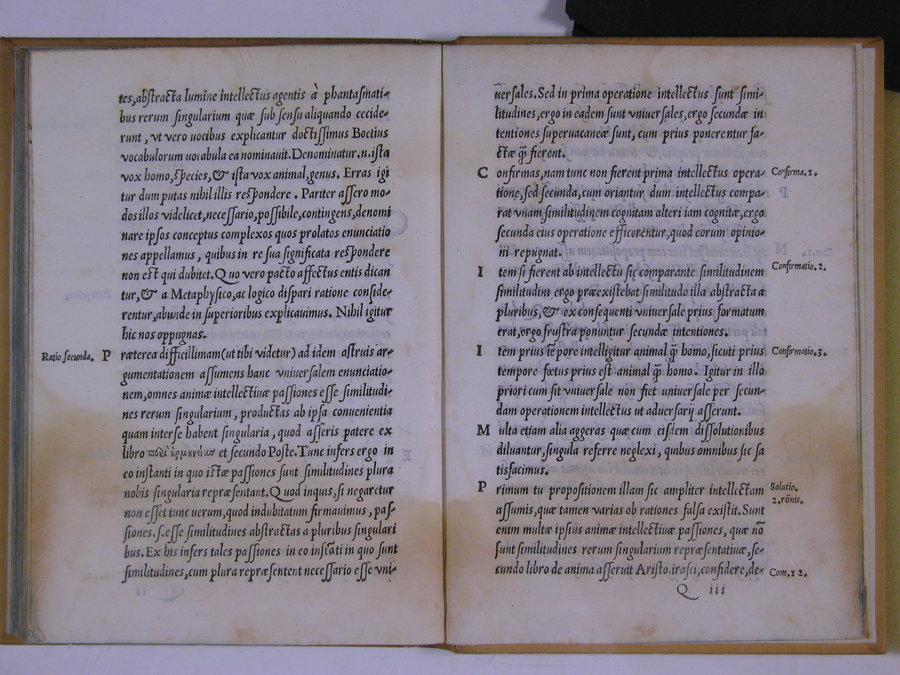 tes, abstracta lumine intellectus agentis à phantasmati-
bus rerum singularium quæ sub sensu aliquando cecide-
runt, vt vero uocibus explicantur doctissimus Boetius
vocabulorum uocabula ea nominauit. Denominatur.n.ista
vox homo, species, & ista vox animal, genus. Erras igi
tur dum putas nihil illis respondere. Pariter assero mo-
dos illos videlicet, necessario, possibile, contingens, denomi
nare ipsos conceptus complexos quos prolatos enunciatio
nes appellamus, quibus in re sua significata respondere
non est qui dubitet. Quo vero pacto affectus entis dican
tur, & a Metaphysico, ac logico dispari ratione conside-
rentur, abunde in superioribus explicauimus. Nihil igitur
hic nos oppugnas.
Ratio secunda. Præterea difficillimam (ut tibi videtur) ad idem astruis ar-
gumentationem assumens hanc vniuersalem enunciatio-
nem, omnes animæ intellectiuæ passiones esse similitudi-
nes rerum singularium, productas ab ipsa conuenientia
quam inter se habent singularia, quod asseris patere ex
libro et secundo Poste. Tunc infers ergo in
eo instanti in quo istæ passiones sunt similitudines plura
nobis singularia repræsentant. Quod inquis, si negaretur
non esset tunc uerum, quod indubitatum firmauimus, pas-
siones.s.esse similitudines abstractas a pluribus singulari
bus. Ex his infers tales passiones in eo instāti in quo sunt
similitudines, cum plura repræsentent necessario esse vni-
uersales. Sed in prima operatione intellectus sunt simi-
litudines, ergo in eadem sunt vniuersales, ergo secundæ in
tentiones superuacaneæ sunt, cum prius ponerentur fa-
ctæ q̃ fierent.
Confirmas, nam tunc non fierent prima intellectus opera- Confirma. 1.
tione, sed secunda, cum oriantur dum intellectus compa-
rat vnam similitudinem cognitam alteri iam cognitæ, ergo
secunda eius operatione efficerentur, quod eorum opinio-
ni repugnat.
Item si fierent ab intellectu sic comparante similitudinem Confirmatio. 2.
similitudini ergo præexistebat similitudo illa abstracta a
pluribus, & ex consequenti vniuersale prius formatum
erat, ergo frustra ponuntur secundæ intentiones.
Item prius tēpore intelligitur animal q̃ homo, sicuti prius Confirmatio. 3.
tempore fœtus prius est animal q̃ homo. Igitur in illo
priori cum sit vniuersale non fiet vniuersale per secun-
dam operationem intellectus ut aduersarij asserunt.
Multa etiam alia aggeras quæ cum eisdem dissolutionibus
diluantur, singula referre neglexi, quibus omnibus sic sa
tisfacimus.
Primum tu propositionem illam sic ampliter intellectam Solutio.
assumis, quæ tamen varias ob rationes falsa existit. Sunt 2. rōnis.
enim multæ ipsius animæ intellectiuæ passiones, quæ nō
sunt similitudines rerum singularium repræsentatiuæ, se-
cundo libro de anima asseruit Aristo. irasci, confidere, de- Com. 12.
Q iii